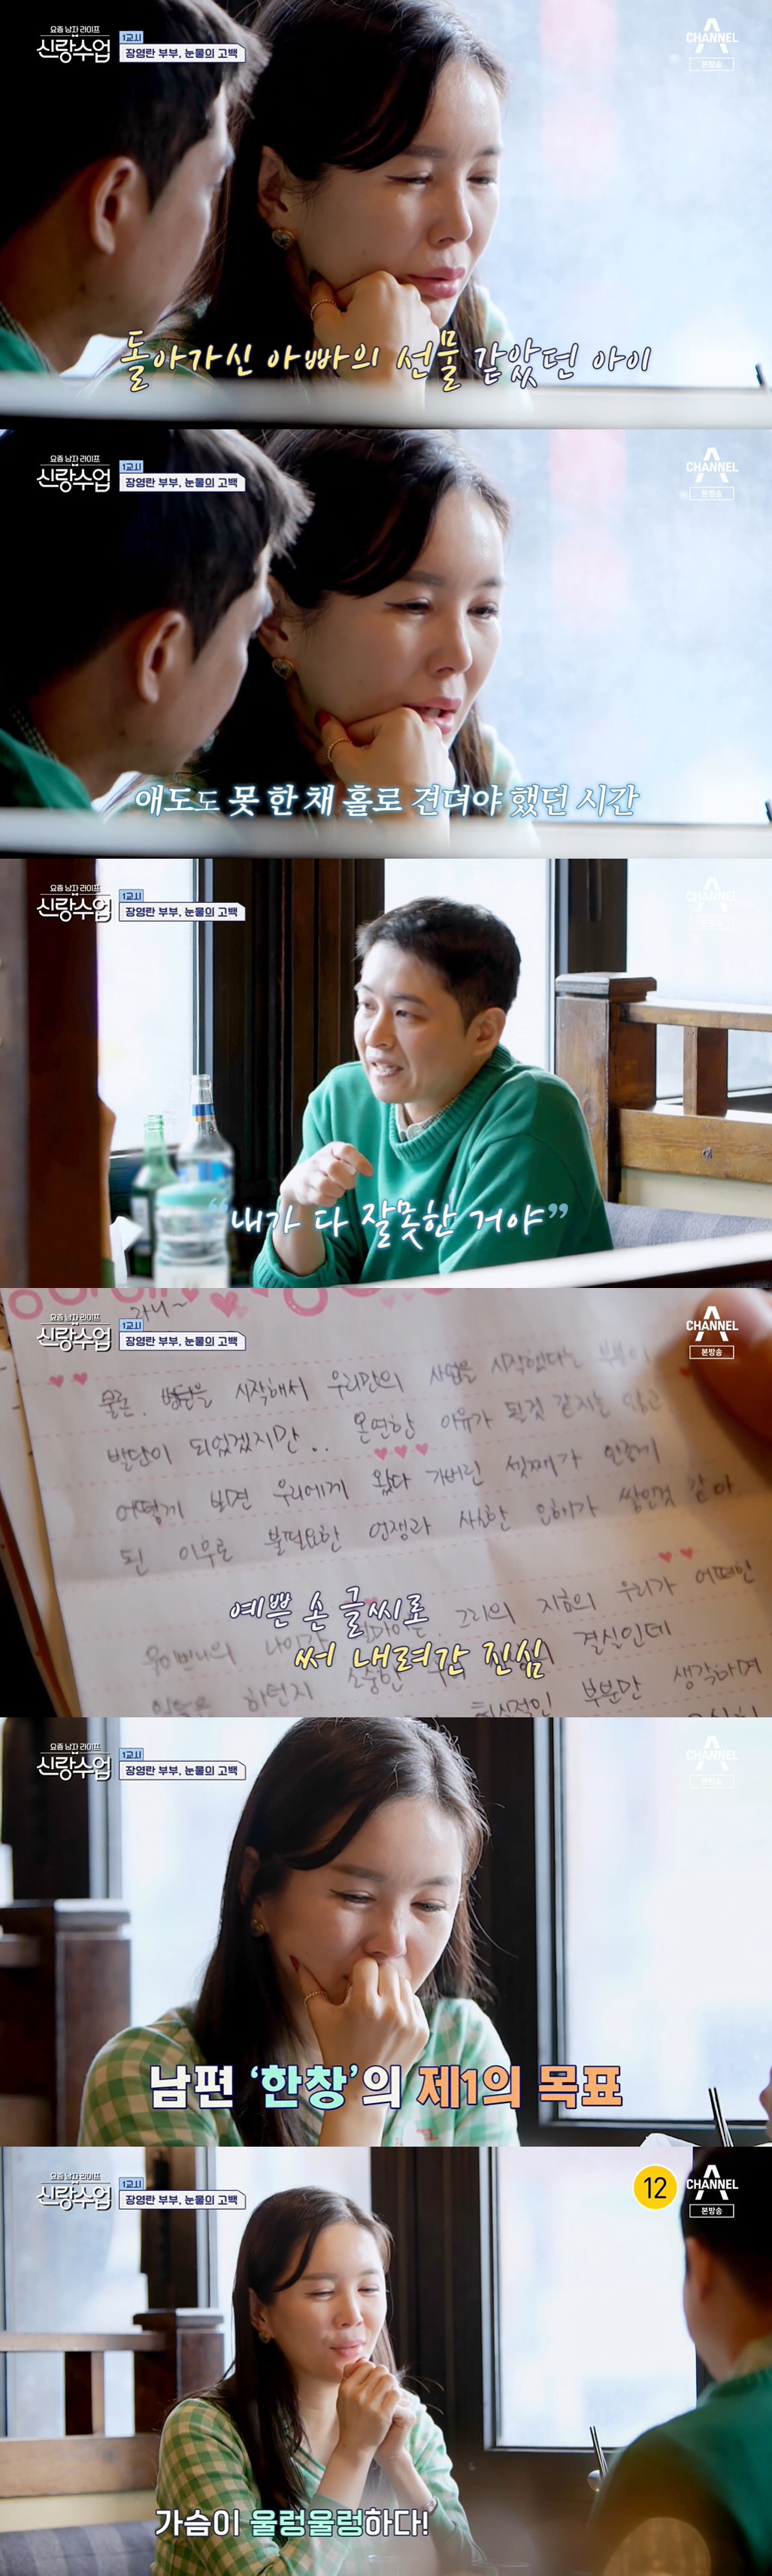 요즘 남자 라이프
신랑수업
1교시
장영란 부부, 눈물의 고백
CHANNEL A
본방송
돌아가신 아빠의 선물 같았던 아이
요즘 남자 라이프
신랑수업
1교시
장영란 부부, 눈물의 고백
CHANNEL A
본방송
애도도 못 한 채 홀로 견뎌야 했던 시간
요즘 남자 라이프
신랑수업
1교시
장영란 부부, 눈물의 고백
CHANNEL A
본방송
“내가 다 잘못한 거야”
요즘 남자 라이프
신랑수업
1교시
장영란 부부, 눈물의 고백
CHANNEL A
본방송
물론, 병원을 시작해서 우리만의 사업을 시작했다는 부분이
발단이 되었겠지만.. 온연한 이유가 될것 같지는 않고
어떻게 보면 우리에게 왔다 가버린 셋째가 안좋게
된 이후로 불필요한 언쟁과 사소한 오해가 쌓인것 같아
그리의 지금의 우리가 어떠한
결실인데
하던지 소중한
현실적인 부분만 생각하며
예쁜 손 글씨로
써 내려간 진심
요즘 남자 라이프
신랑수업
1교시
장영란 부부, 눈물의 고백
CHANNEL A
본방송
남편 ‘한창’의 제1의 목표
요즘 남자 라이프
신랑수업
1교시
장영란 부부, 눈물의 고백
12
CHANNEL A
본방송
가슴이 울렁울렁하다!